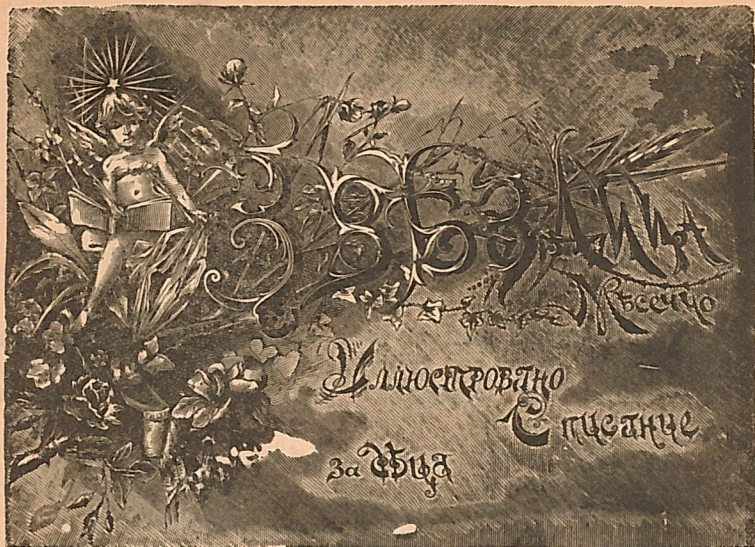 ЗВѢЗДИЦА
Мѣсечно
Иллюстровано
Списание
за дѣца